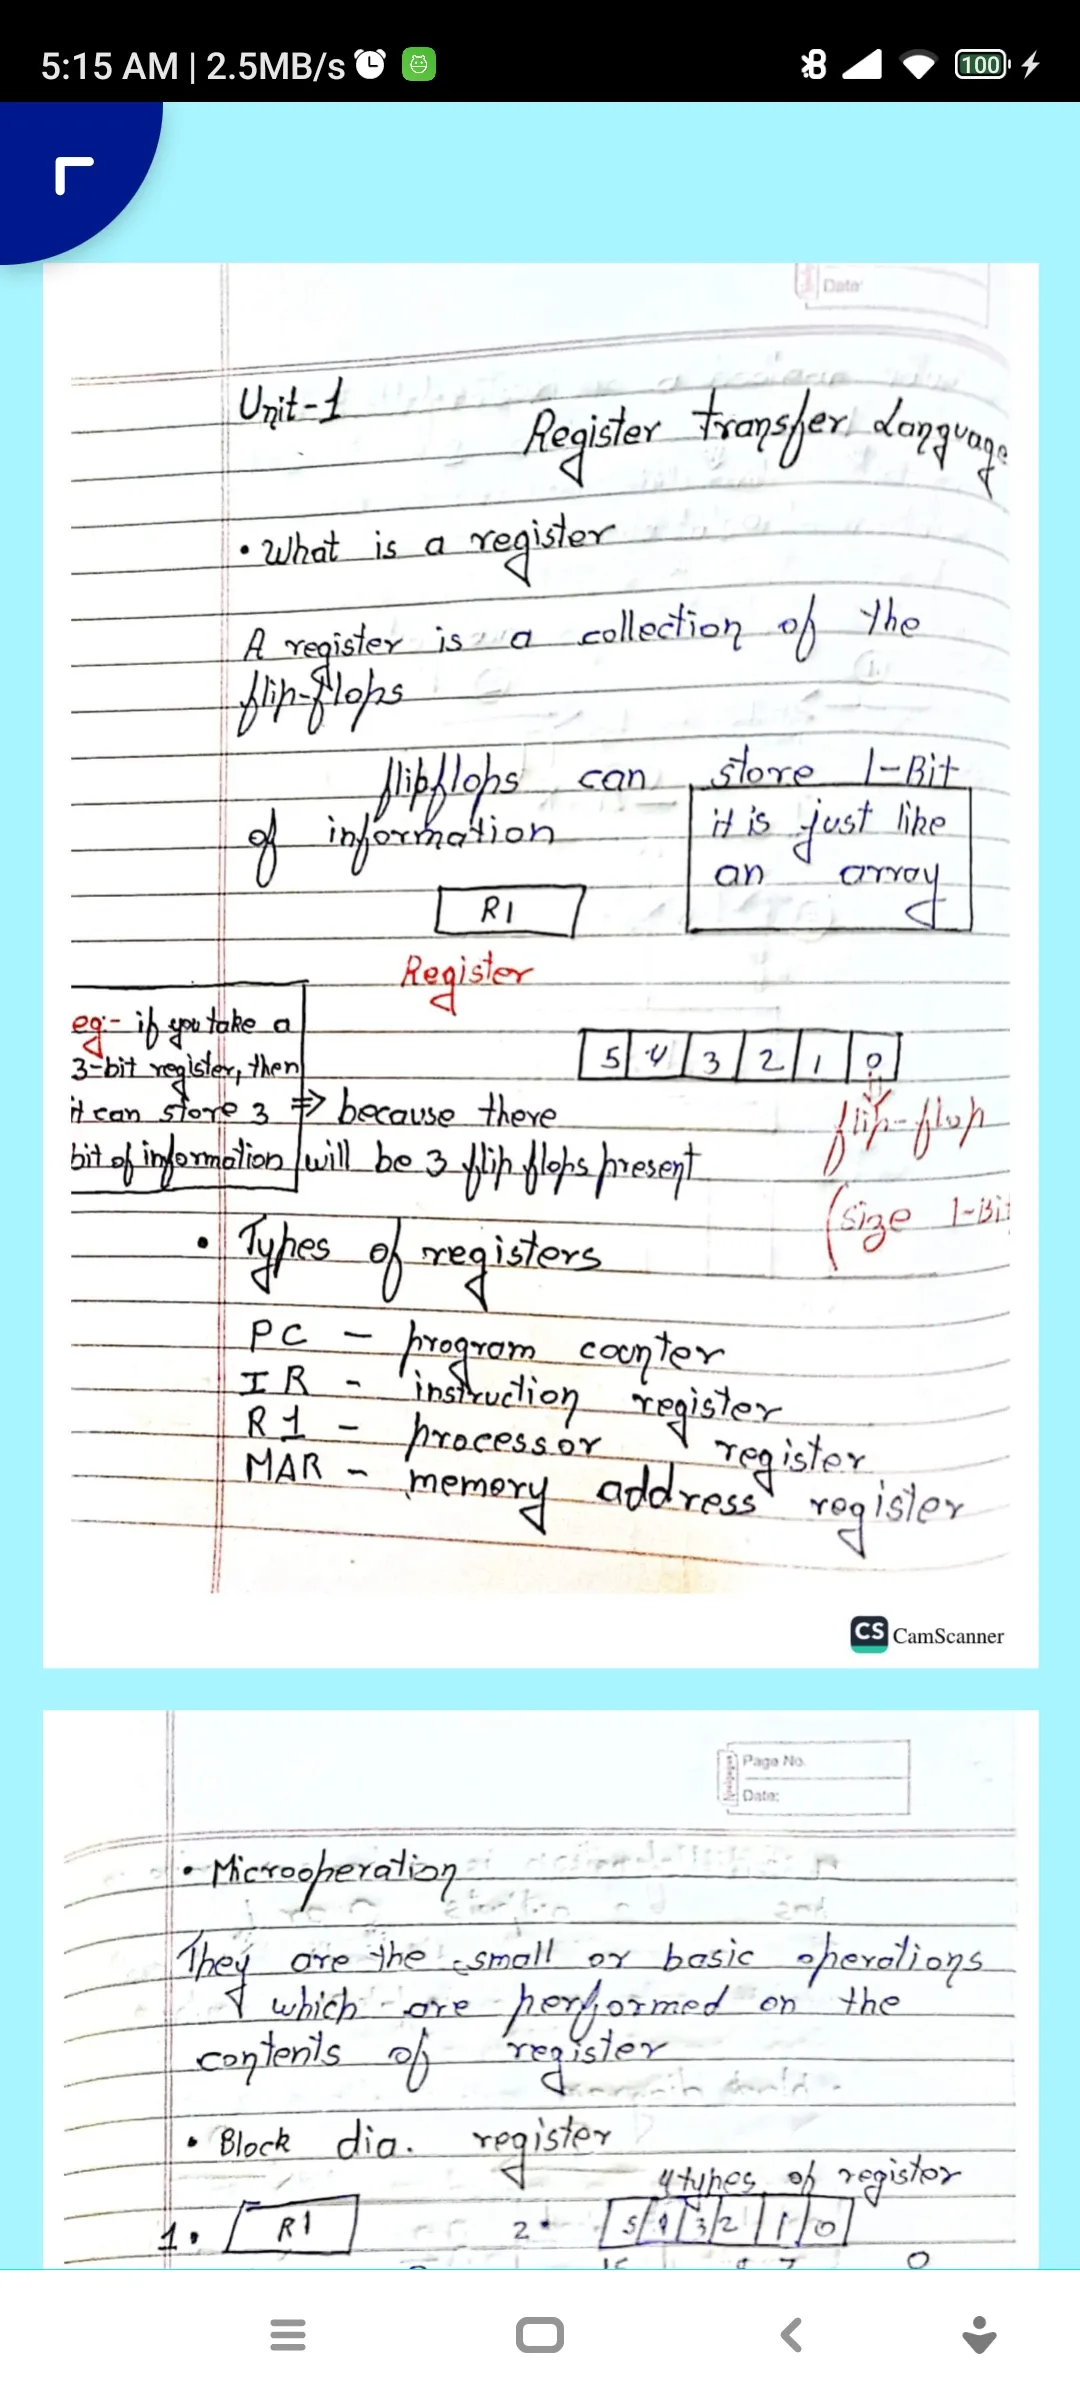 5:15 AM | 2.5MB/s
100
Date
Unit-1
Register transfer Language
• What is a register
A register is a collection of the
flip-flops
flipflops can store 1-Bit
of information
it is just like
an array
R1
Register
eg:- if you take a
3-bit register, then
it can store 3
bit of information
⇒ because there
will be 3 flip flops present
5 4 3 2 1 0
flip-flop
(size 1-Bit
• Types of registers
PC - program counter
IR - instruction register
R1 - processor register
MAR - memory address register
CS CamScanner
Page No.
Date:
• Microoperation
They are the small or basic operations
which are performed on the
contents of register
• Block dia. register
4 types of register
1. R1
2. 5 4 3 2 1 0